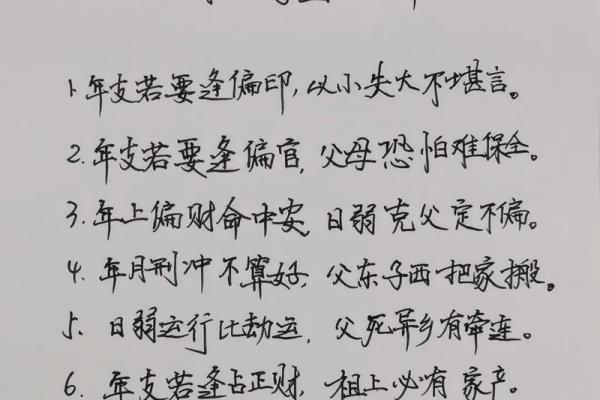 1、年支若要逢偏印,以小失大不堪言。
2.年支若要逢偏官,父母恐怕难保全。
3.年上偏财命中安,日弱克父定不偏。
4.年月刑冲不算好,父东子西把家搬。
5、日弱运行比劫运,父死异乡有牵连。
6.年支若逢占正财,祖上必有家产。